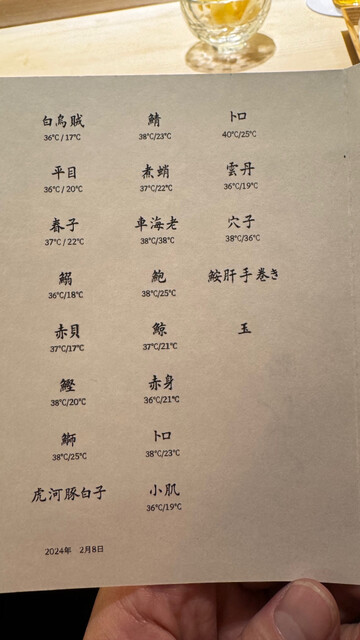 白烏賊
36°C / 17°C
平目
36°C / 20°C
春子
37°C / 22°C
鰯
36°C/18°C
赤貝
37°C/17°C
鰹
38°C/20°C
鰤
38°C/25°C
虎河豚白子
鯖
38°C/23°C
煮蛸
37°C/22°C
車海老
38°C/38°C
鮑
38°C/25°C
鯨
37°C/21°C
赤身
36°C/21°C
トロ
38°C/23°C
小肌
36°C/19°C
トロ
40°C/25°C
雲丹
36°C/19°C
穴子
38°C/36°C
鮟肝手巻き
玉
2024年 2月8日